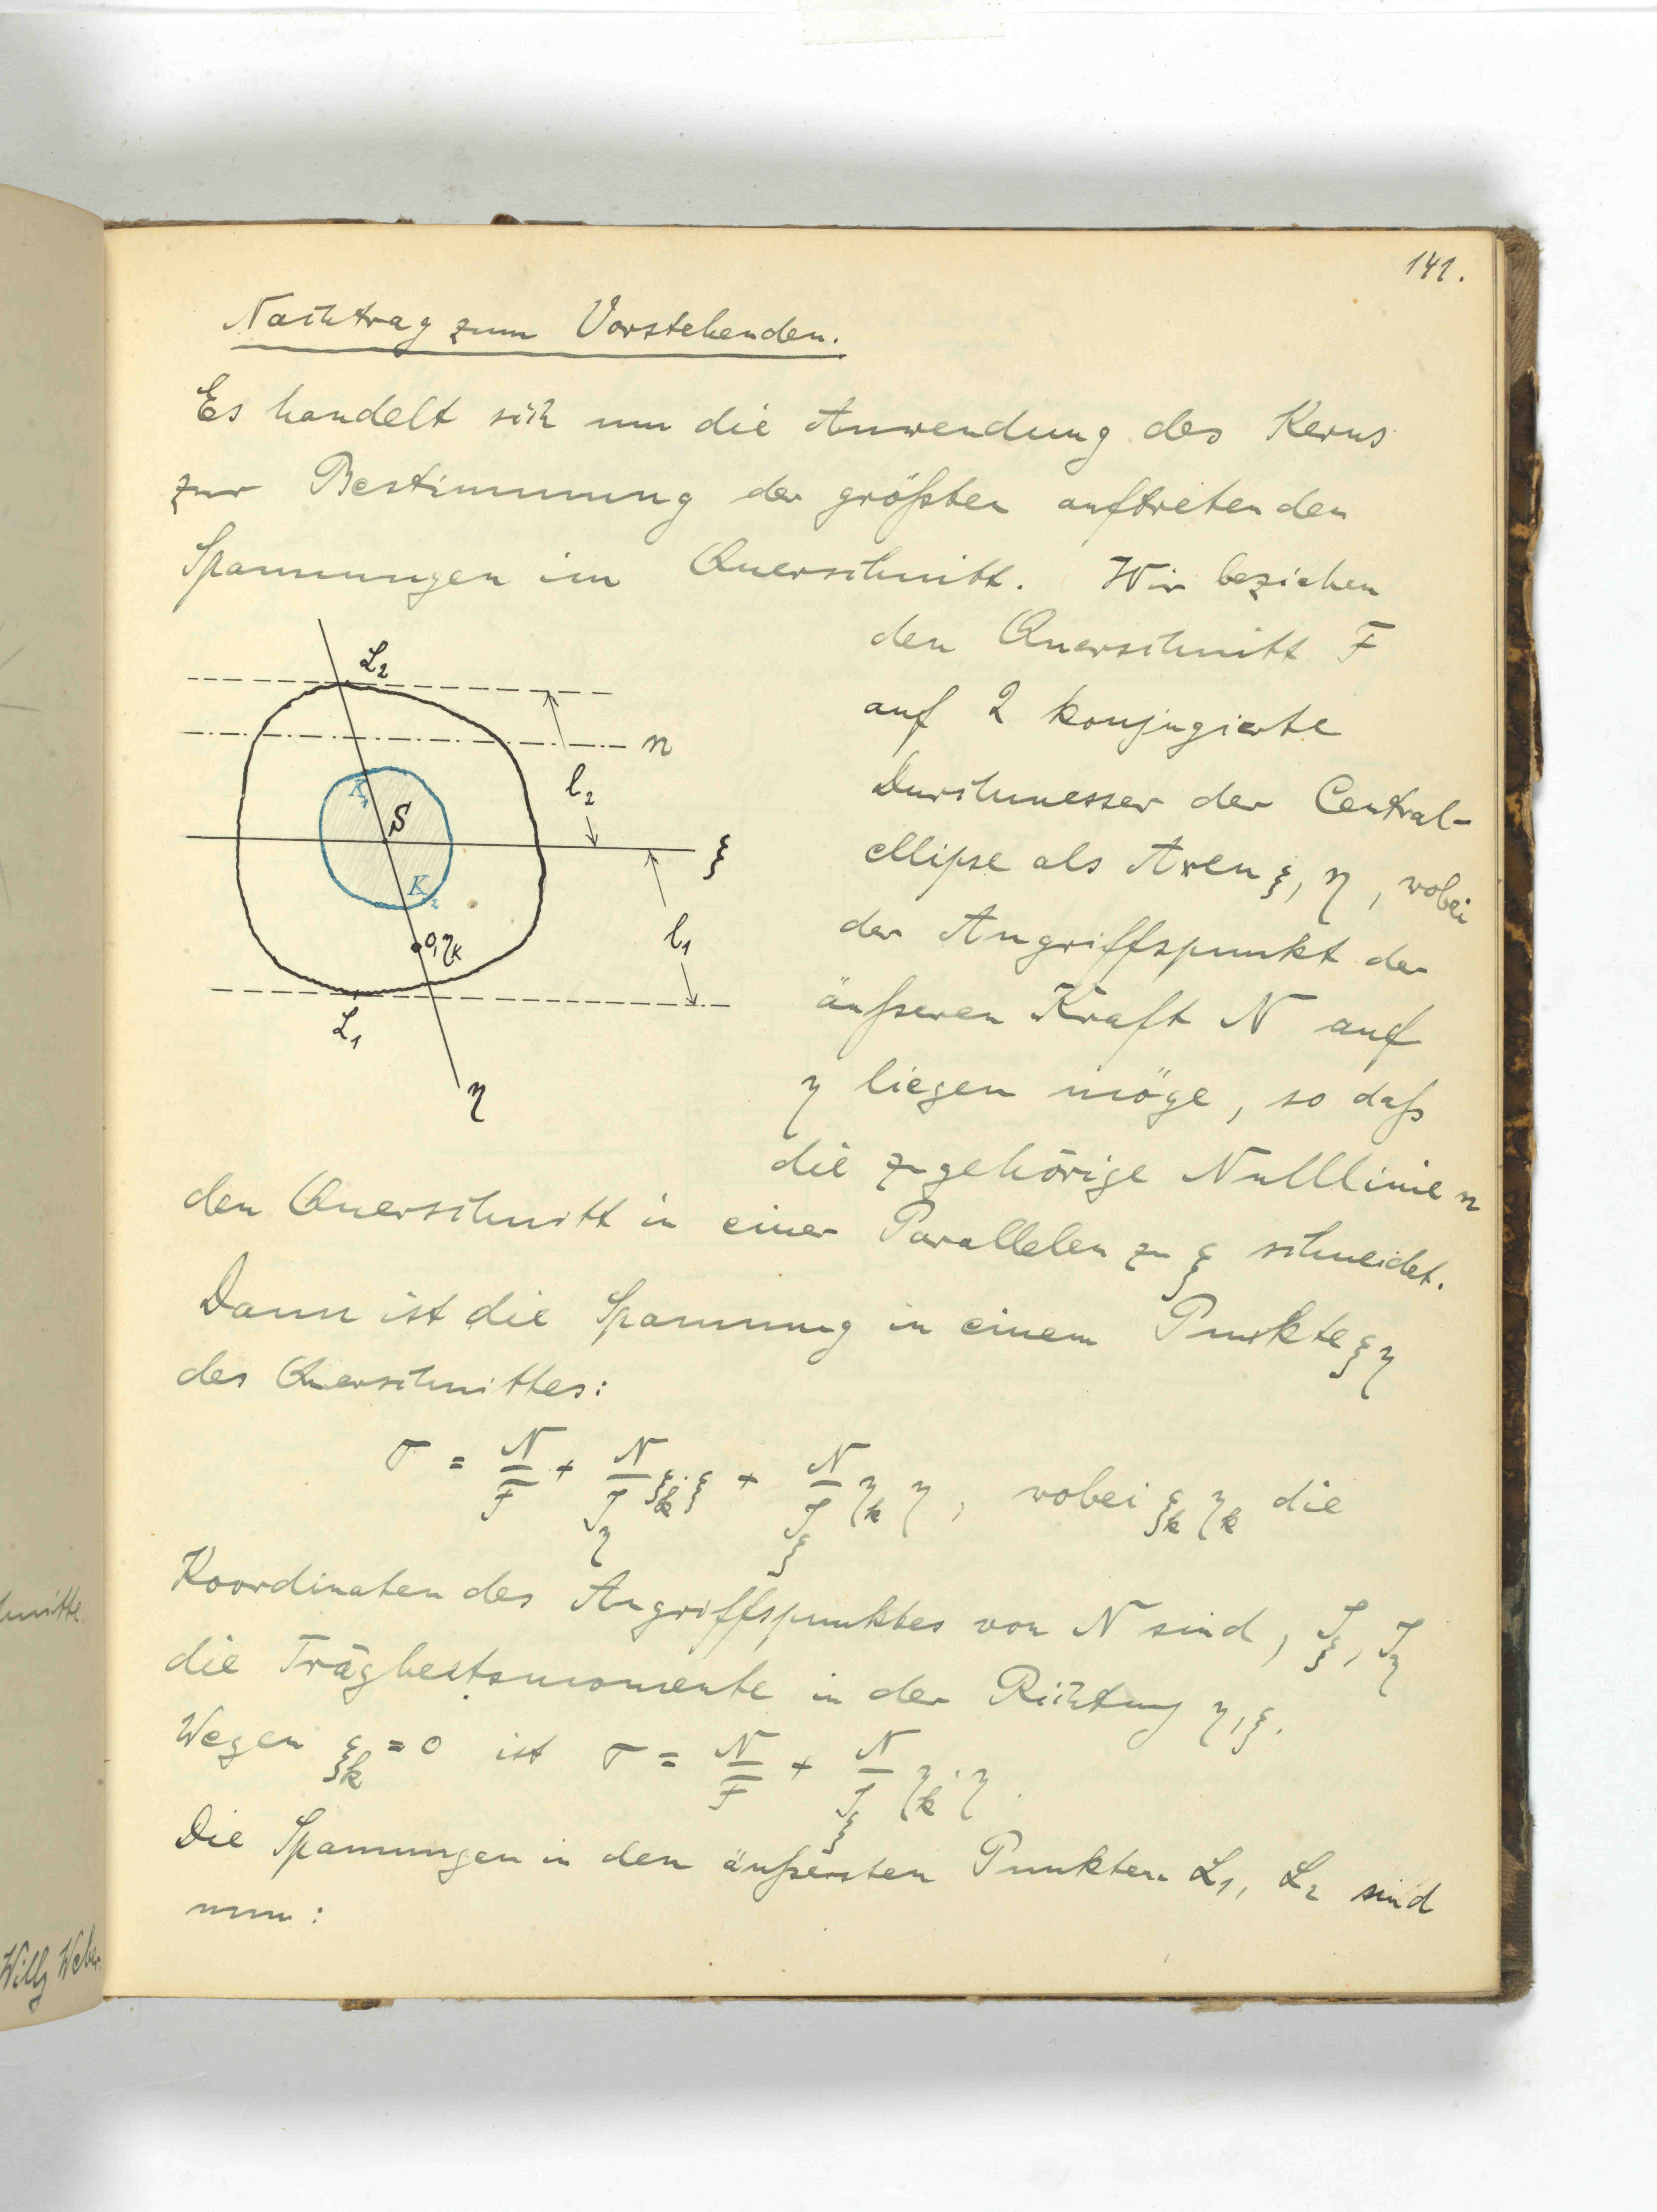 141.
Nachtrag zum Vorstehenden.
Es handelt sich um die Anwendung des Kerns
zur Bestimmung der größten auftretenden
Spannungen im Querschnitt. Wir beziehen
den Querschnitt F
auf 2 konjugierte
Durchmesser der Central-
ellipse als Axen ξ, η, wobei
der Angriffspunkt der
äußeren Kraft N auf
η liegen möge, so daß
die zugehörige Nulllinie n
L₂
n
l₂
K₁
S
ξ
K₂
l₁
0,ηₖ
L₁
η
den Querschnitt in einer Parallelen zu ξ schneidet.
Dann ist die Spannung in einem Punkte ξ η
des Querschnittes:
σ = N/F + N/J_η ξₖ·ξ + N/J_ξ ηₖ η, wobei ξₖ ηₖ die
Koordinaten des Angriffspunktes von N sind, J_ξ, J_η
die Trägheitsmomente in der Richtung η, ξ.
Wegen ξₖ = 0 ist σ = N/F + N/J_ξ ηₖ·η.
Die Spannungen in den äußersten Punkten L₁, L₂ sind
nun:
hnitte.
Willy Weber.